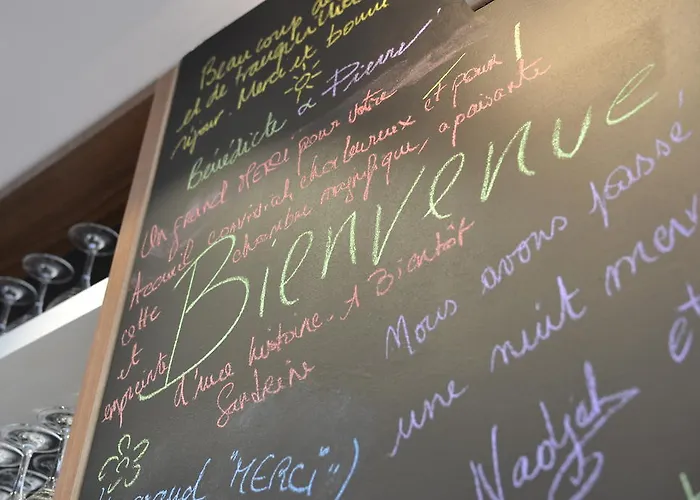 Beaucoup de
et de tranquillité
séjour. Merci et bonne
Bénédicte & Pierre
Un grand MERCI pour votre
Accueil convivial, chaleureux et pour
cette chambre magnifique, apaisante
et
empreinte d'une histoire. A Bientôt
Sandrine
Bienvenue !
Nous avons passé
une nuit
et
Nadjah
grand "MERCI")